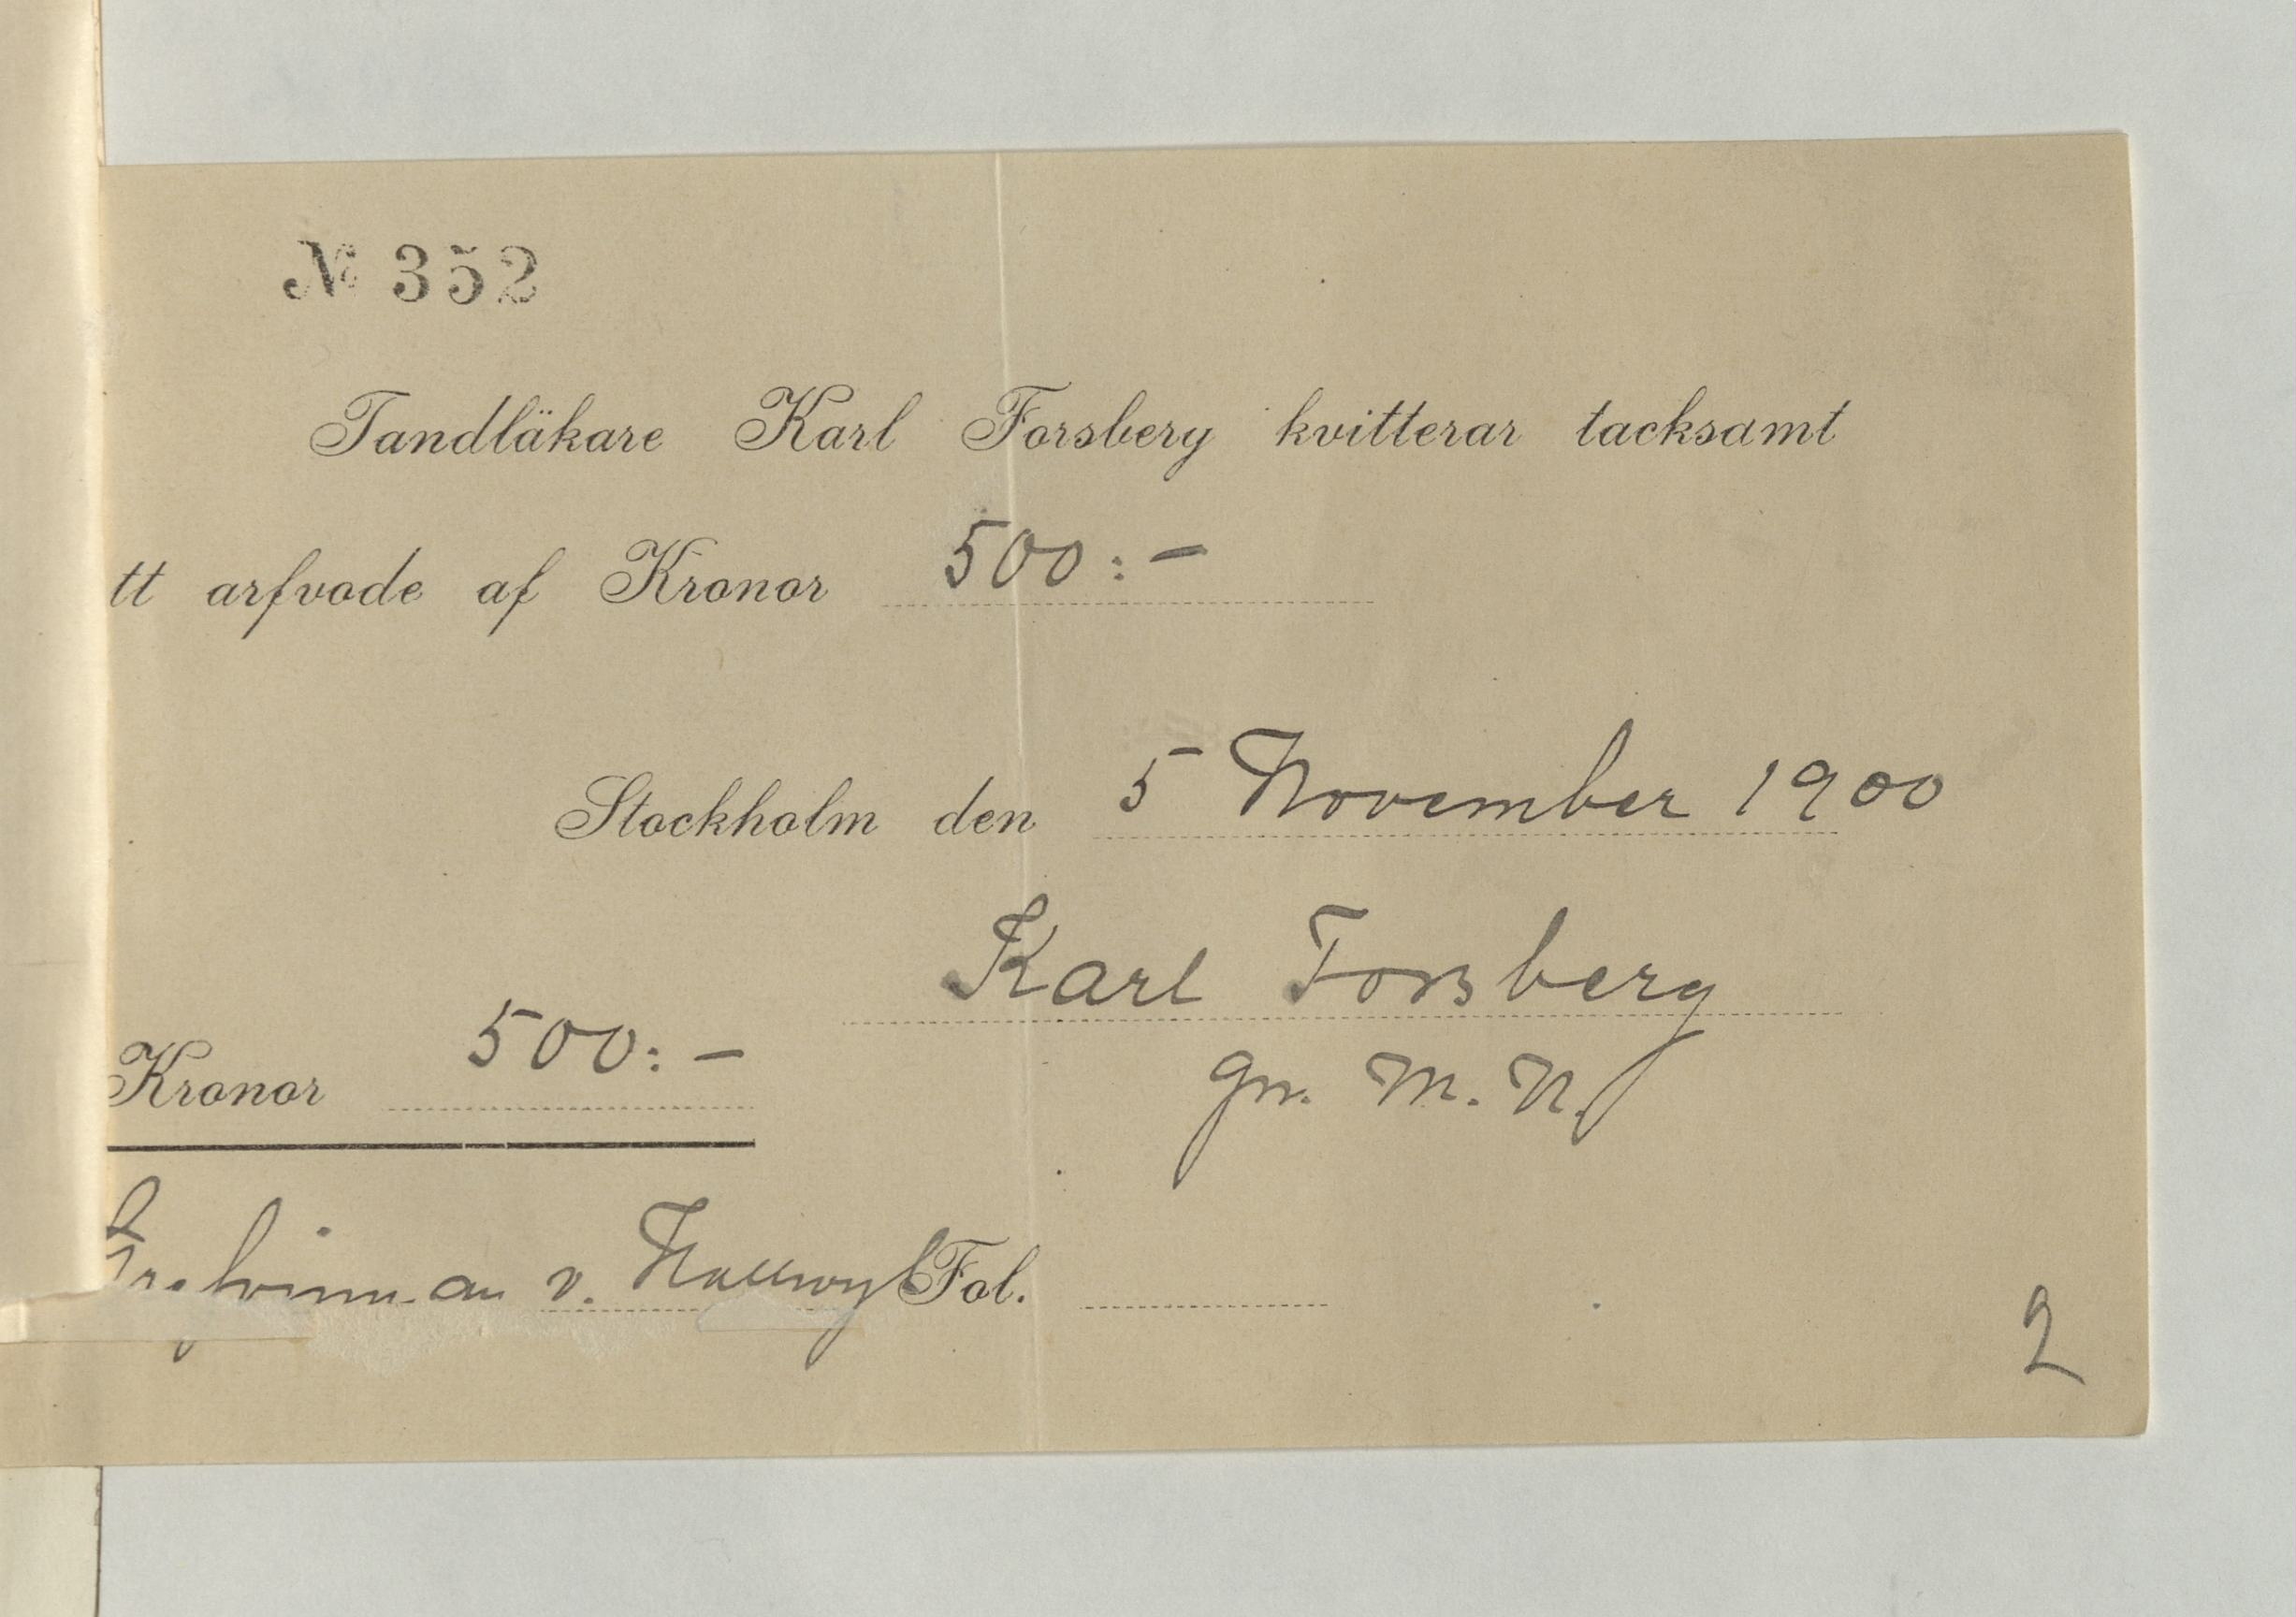 № 352
Tandläkare Karl Forsberg kvitterar tacksamt
tt arfvode af Kronor 500:–
Stockholm den 5 November 1900
Karl Forsberg
Kronor 500:–
gm. M. N.
Grefvinnan v. Hallwyl Fol.
2